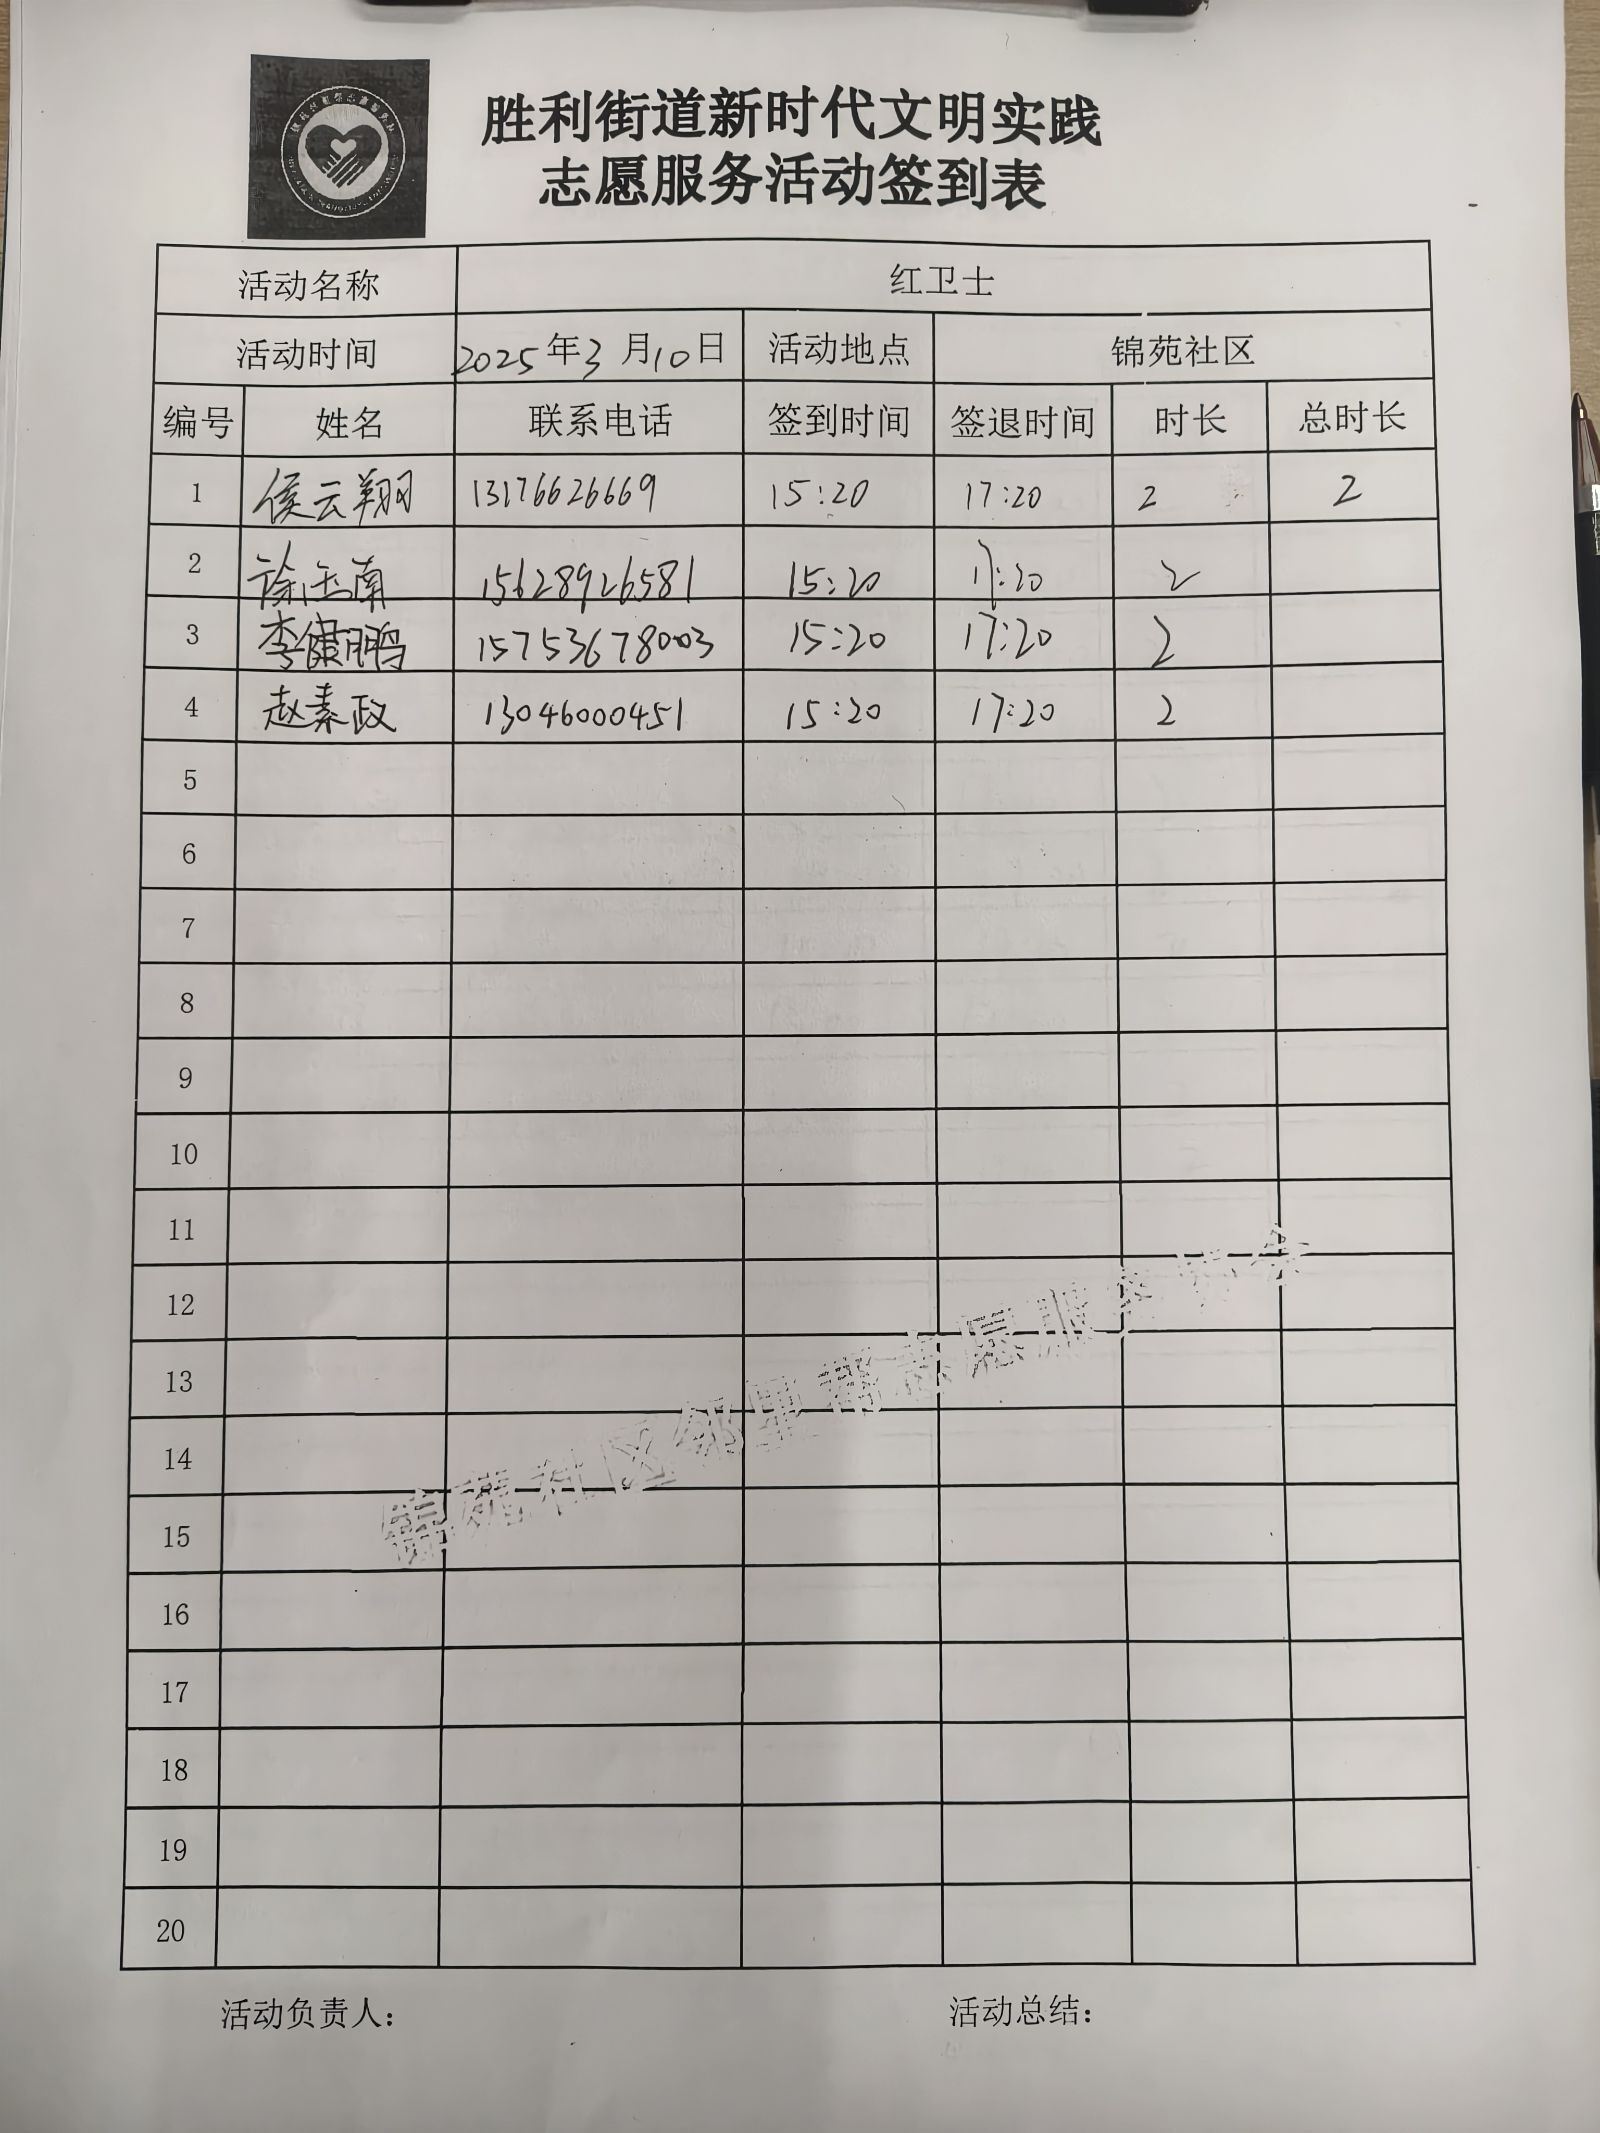 胜利街道新时代文明实践
志愿服务活动签到表
活动名称 红卫士
活动时间 2025年3月10日 活动地点 锦苑社区
编号 姓名 联系电话 签到时间 签退时间 时长 总时长
1 侯云翔 13176626669 15:20 17:20 2 2
2 徐玉南 15628926581 15:20 17:20 2
3 李健鹏 15753678003 15:20 17:20 2
4 赵素政 13046000451 15:20 17:20 2
5
6
7
8
9
10
11
12
13
14
15
16
17
18
19
20
锦苑社区邻里帮志愿服务协会
活动负责人： 活动总结：